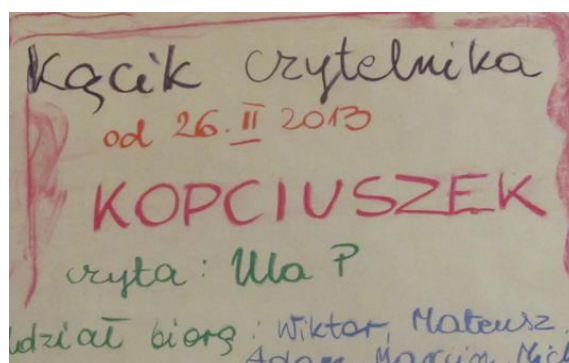 Kącik czytelnika
od 26. II 2013
KOPCIUSZEK
czyta: Ula P
udział biorą: Wiktor, Mateusz,
Adam, Marcin, Mich